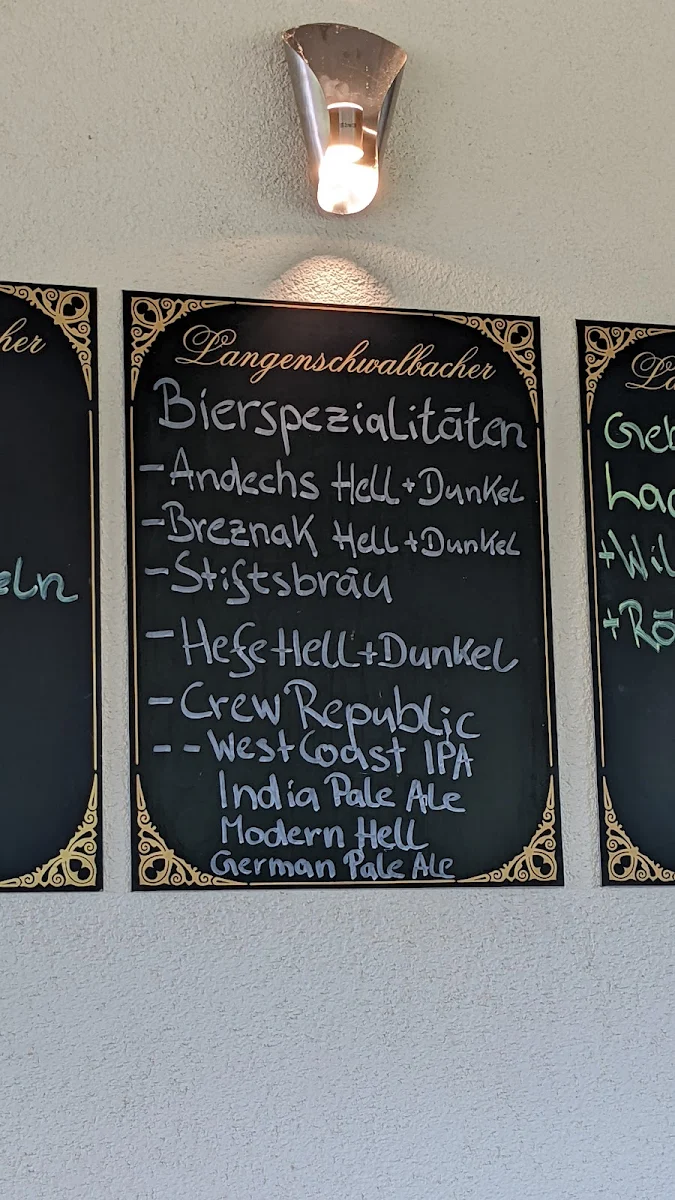 her
eln
Langenschwalbacher
Bierspezialitäten
- Andechs Hell + Dunkel
- Breznak Hell + Dunkel
- Stiftsbräu
- Hefe Hell + Dunkel
- Crew Republic
- - West Coast IPA
India Pale Ale
Modern Hell
German Pale Ale
La
Geb
Lac
+ Wil
+ Rö